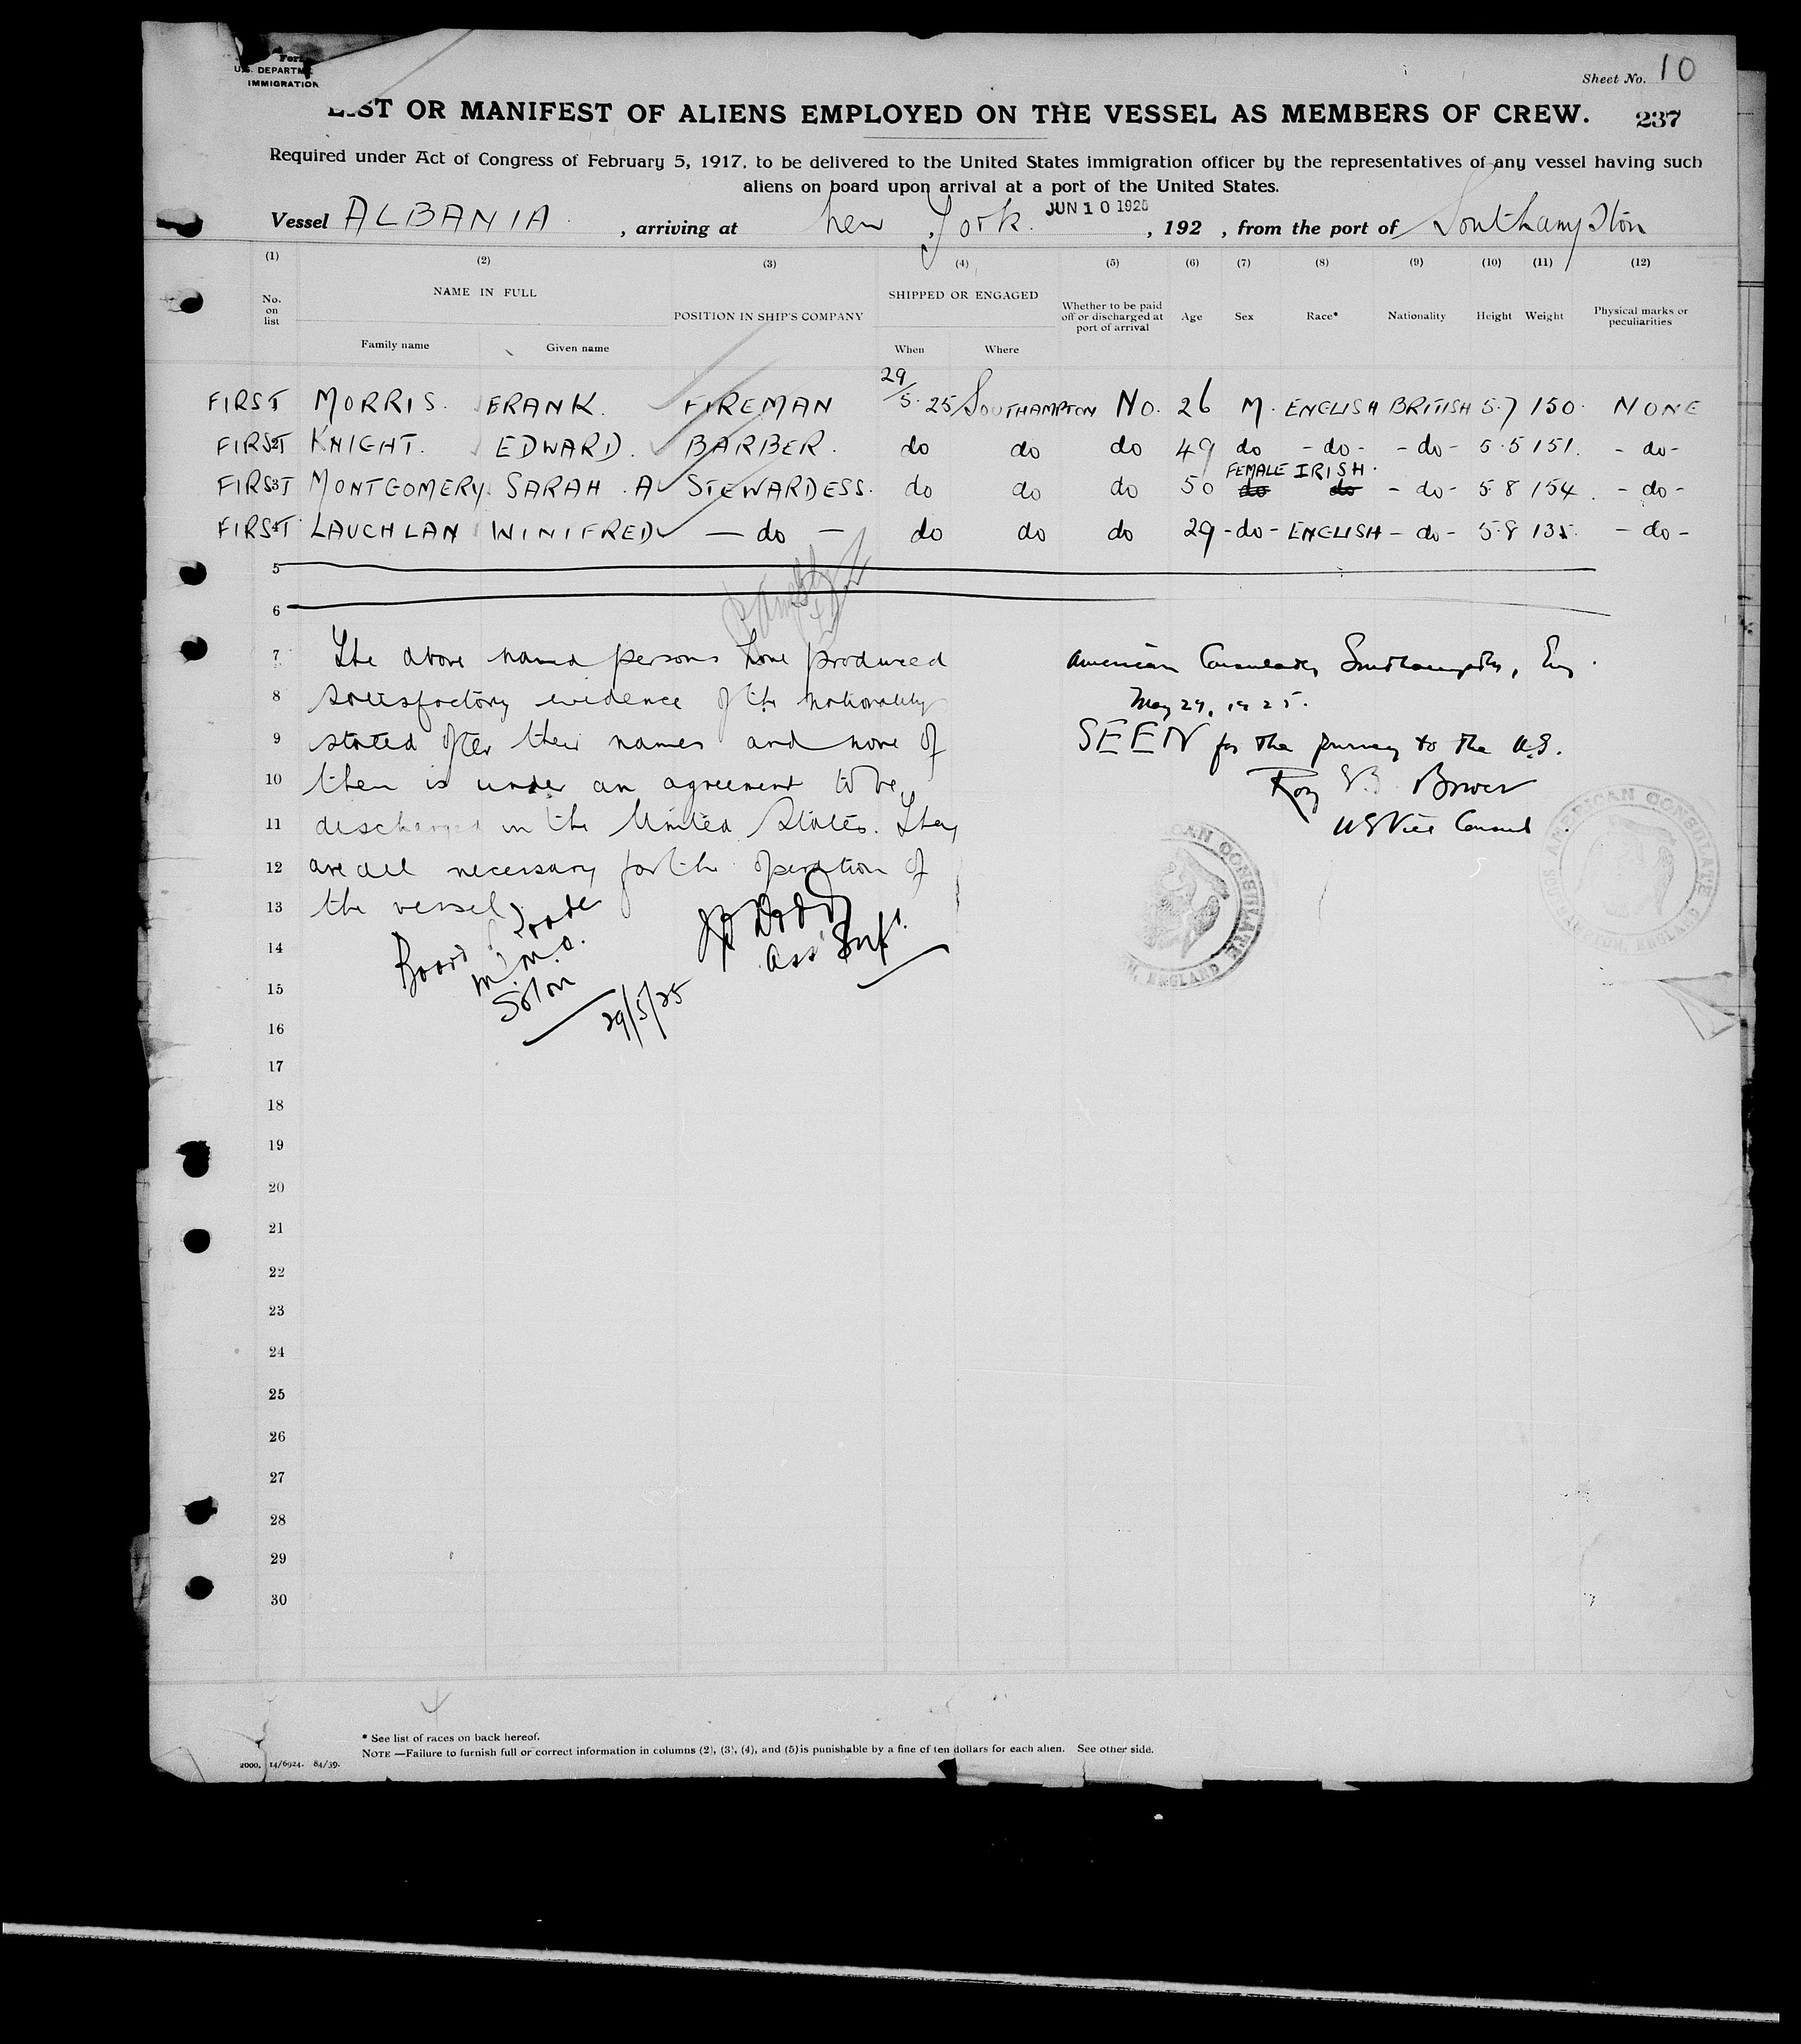 Form
U.S. DEPARTM
IMMIGRATION
Sheet No. 10
LIST OR MANIFEST OF ALIENS EMPLOYED ON THE VESSEL AS MEMBERS OF CREW. 237
Required under Act of Congress of February 5, 1917, to be delivered to the United States immigration officer by the representatives of any vessel having such
aliens on board upon arrival at a port of the United States.
Vessel ALBANIA , arriving at New York. JUN 10 1925 , 192 , from the port of Southampton
(1) (2) (3) (4) (5) (6) (7) (8) (9) (10) (11) (12)
No. on list NAME IN FULL Family name Given name POSITION IN SHIP'S COMPANY SHIPPED OR ENGAGED When Where Whether to be paid off or discharged at port of arrival Age Sex Race* Nationality Height Weight Physical marks or peculiarities
FIRST MORRIS. FRANK. FIREMAN 29/5.25 SOUTHAMPTON NO. 26 M. ENGLISH BRITISH 5.7 150. NONE
FIRST 2 KNIGHT. EDWARD. BARBER. do do do 49 do - do - - do - 5.5 151. - do -
FIRST 3 MONTGOMERY. SARAH. A STEWARDESS. do do do 50 do FEMALE do IRISH. - do - 5.8 154. - do -
FIRST 4 LAUCHLAN WINIFRED - do - do do do 29 - do - ENGLISH - do - 5.8 135. - do -
5
6
7 The above named persons have produced
8 satisfactory evidence of the nationality
9 stated after their names and none of
10 them is under an agreement to be
11 discharged in the United States. They
12 are all necessary for the operation of
13 the vessel
American Consulate, Southampton, Eng.
May 29, 1925.
SEEN for the journey to the U.S.
Roy Bower
US Vice Consul
AMERICAN CONSULATE SOUTHAMPTON, ENGLAND
CAN CONSULATE ENGLAND
Board of Trade
M.M.O.
Soton
29/5/25
Ass Supt.
14
15
16
17
18
19
20
21
22
23
24
25
26
27
28
29
30
* See list of races on back hereof.
NOTE —Failure to furnish full or correct information in columns (2), (3), (4), and (5) is punishable by a fine of ten dollars for each alien. See other side.
2000. 14/6924. 84/39.